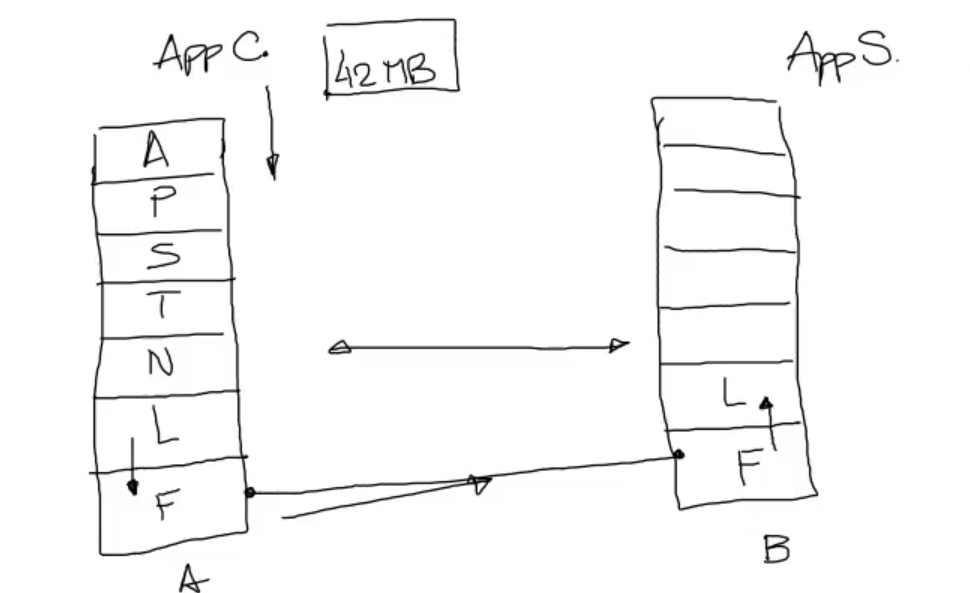 App C.
42 MB
App S.
A
P
S
T
N
L
F
A
L
F
B